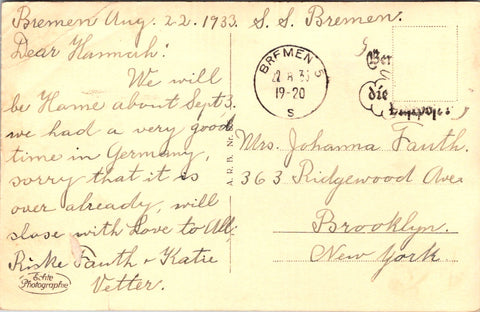 Bremen Aug. 22. 1933. S. S. Bremen.
Dear Hannah!
We will
be Home about Sept 3.
we had a very good
time in Germany,
sorry that it is
over already, will
slose with Love to All,
Fauth + Katie
Vetter.
Echte
Photographie
A. R. B. Nr.
BREMEN 5
22.8.33
19-20
S
die
Mrs. Johanna Fauth.
363 Ridgewood Ave.
Brooklyn.
New York.